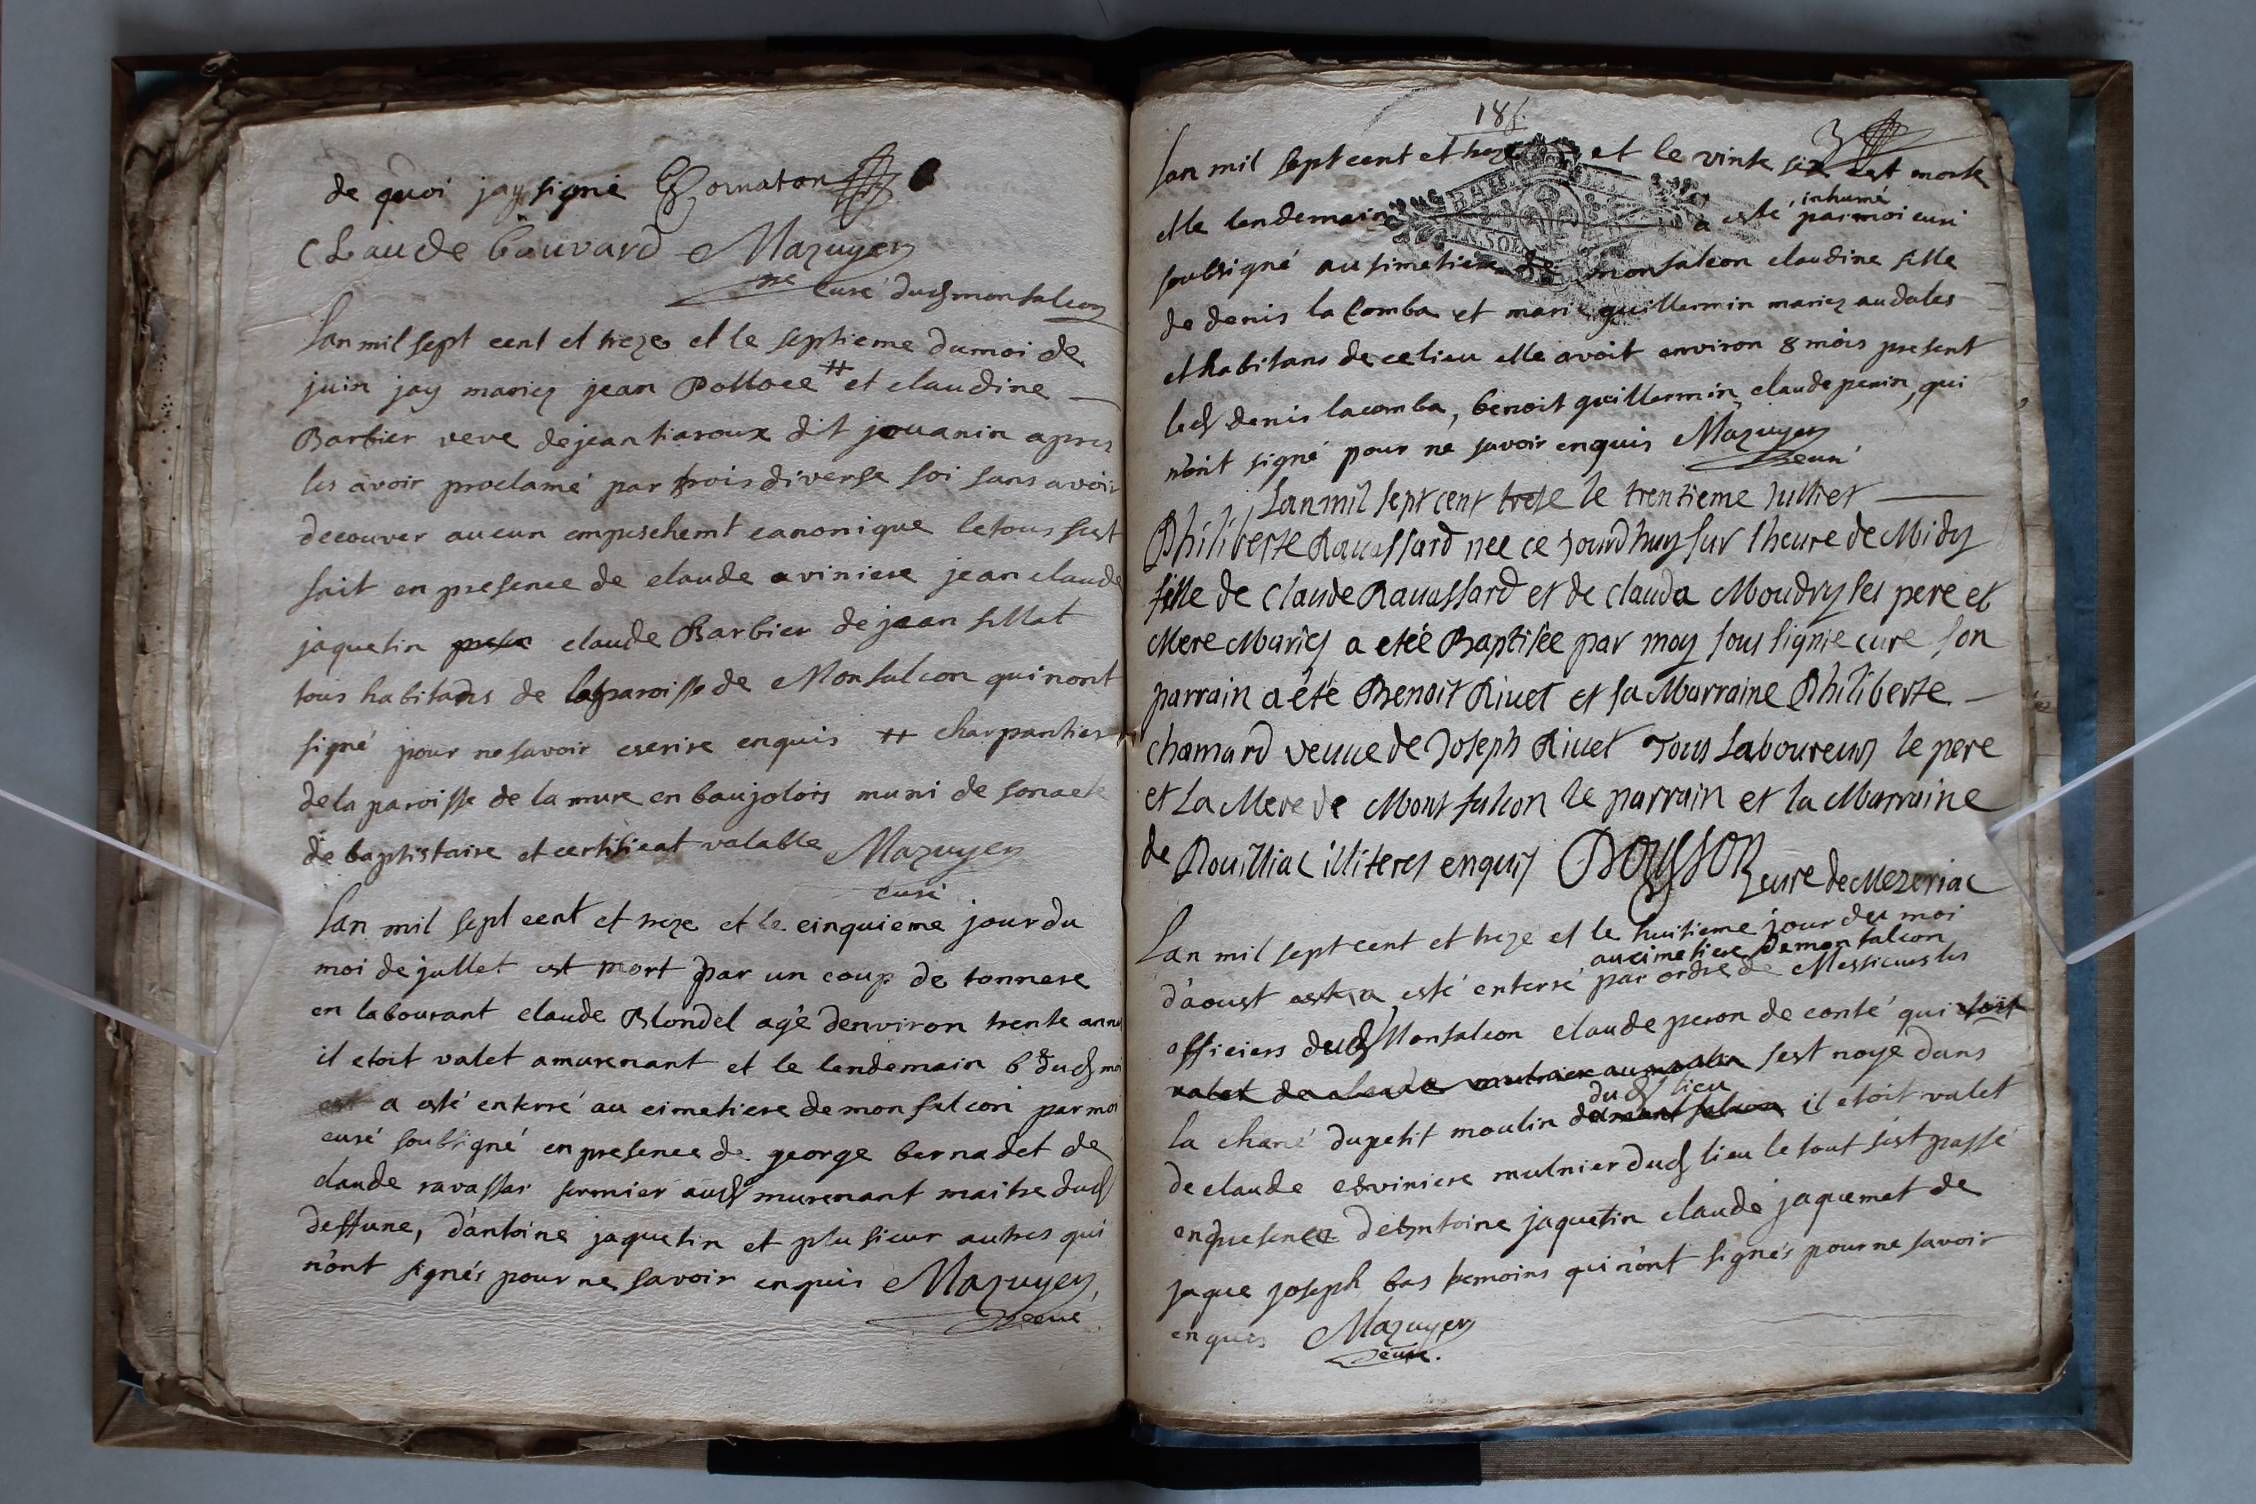 de quoi jay signé Cornaton
Claude bouvard Mazuyer
curé dud monfalcon
Lan mil sept cent et treze et le septieme du moi de
juin jay mariez jean Dolloce # et claudine
Barbier veve de jean tiaroux dit jouanin apres
les avoir proclamé par trois diverse foi sans avoir
decouver aucun empeschemt canonique le tous fust
fait en presence de claude aviniere jean claude
jaquetin claude Barbier de jean fillat
tous habitans de la paroisse de Monfalcon qui nont
signé pour ne savoir escrire enquis # charpantier
de la paroisse de la mure en baujolois muni de son acte
de baptistaire et certificat valable Mazuyer
curé
Lan mil sept cent et treze et le cinquieme jour du
moi de jullet est mort par un coup de tonnere
en labourant claude Blondel agé denviron trente anné
il etoit valet a murenant et le lendemain 6e dud moi
a esté enterré au cimetiere de monfalcon par moi
curé soubsigné en presence de george bernadet de
claude ravassar fermier aud murenant maitre dud
deffunc, d'antoine jaquetin et plusieur autres qui
n'ont signés pour ne savoir enquis Mazuyer,
curé
18
3
Lan mil sept cent et treze et le vint six est morte
et le lendemain a esté inhumé par moi curé
soubsigné au simetiere de monfalcon claudine fille
de denis la Comba et marie guillermin mariez audales
et habitans de ce lieu elle avoit environ 8 mois present
led denis lacomba, benoit guillermin, claude perrin, qui
n'ont signé pour ne savoir enquis Mazuyer
curé
Lan mil sept cent trese le trentieme Julliet
Philiberte Ravassard nee ce Jourdhuy sur lheure de Midy
fille de Claude Ravassard et de clauda Moudry ses pere et
Mere Mariés a etée Baptisée par moy sous signie cure son
parrain a été Benoit Rivet et sa Marraine Philiberte
chamard veuve de Joseph Rivet Tous Laboureurs le pere
et La Mere de Montfalcon le parrain et la Marraine
de Rouilliac illiteres enquis Boysson cure de Mezeriac
Lan mil sept cent et treze et le huitieme jour du moi
au cimetiere de monfalcon
d'aoust a esté enterré par ordre de Messieurs les
officiers dud Monfalcon claude peron de conté qui etoit
valet de claude mulnier au moulin s'est noyé dans
dud lieu
la chané du petit moulin de monfalcon il etoit valet
de claude esviniere mulnier dud lieu le tout s'est passé
en presence de antoine jaquetin claude jaquemet de
jaque joseph bas temoins qui n'ont signés pour ne savoir
enques Mazuyer
curé.